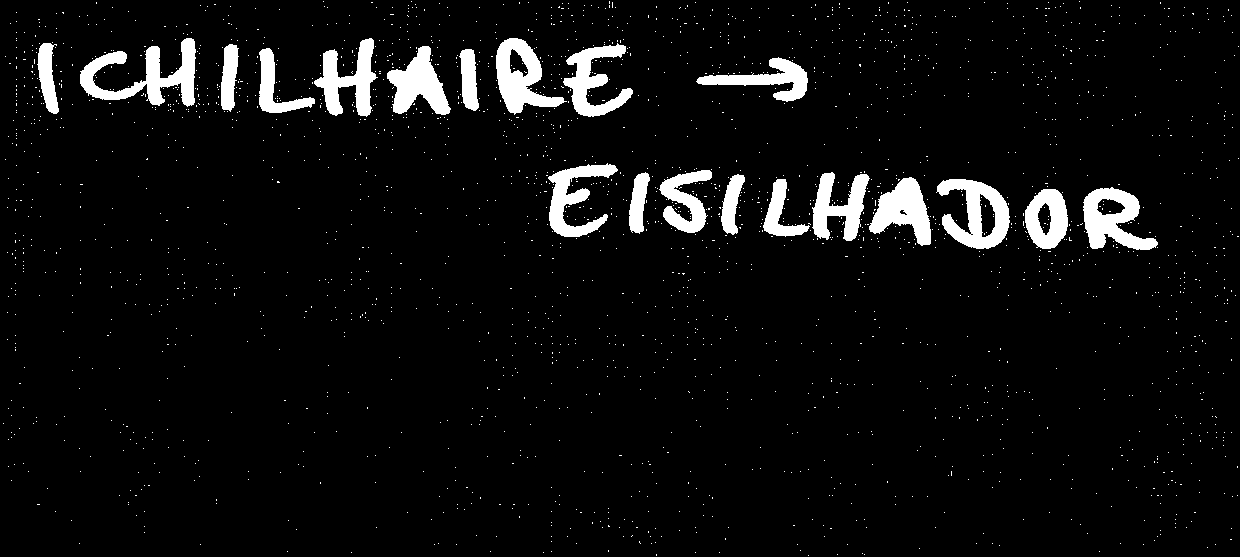 ICHILHAIRE →
EISILHADOR